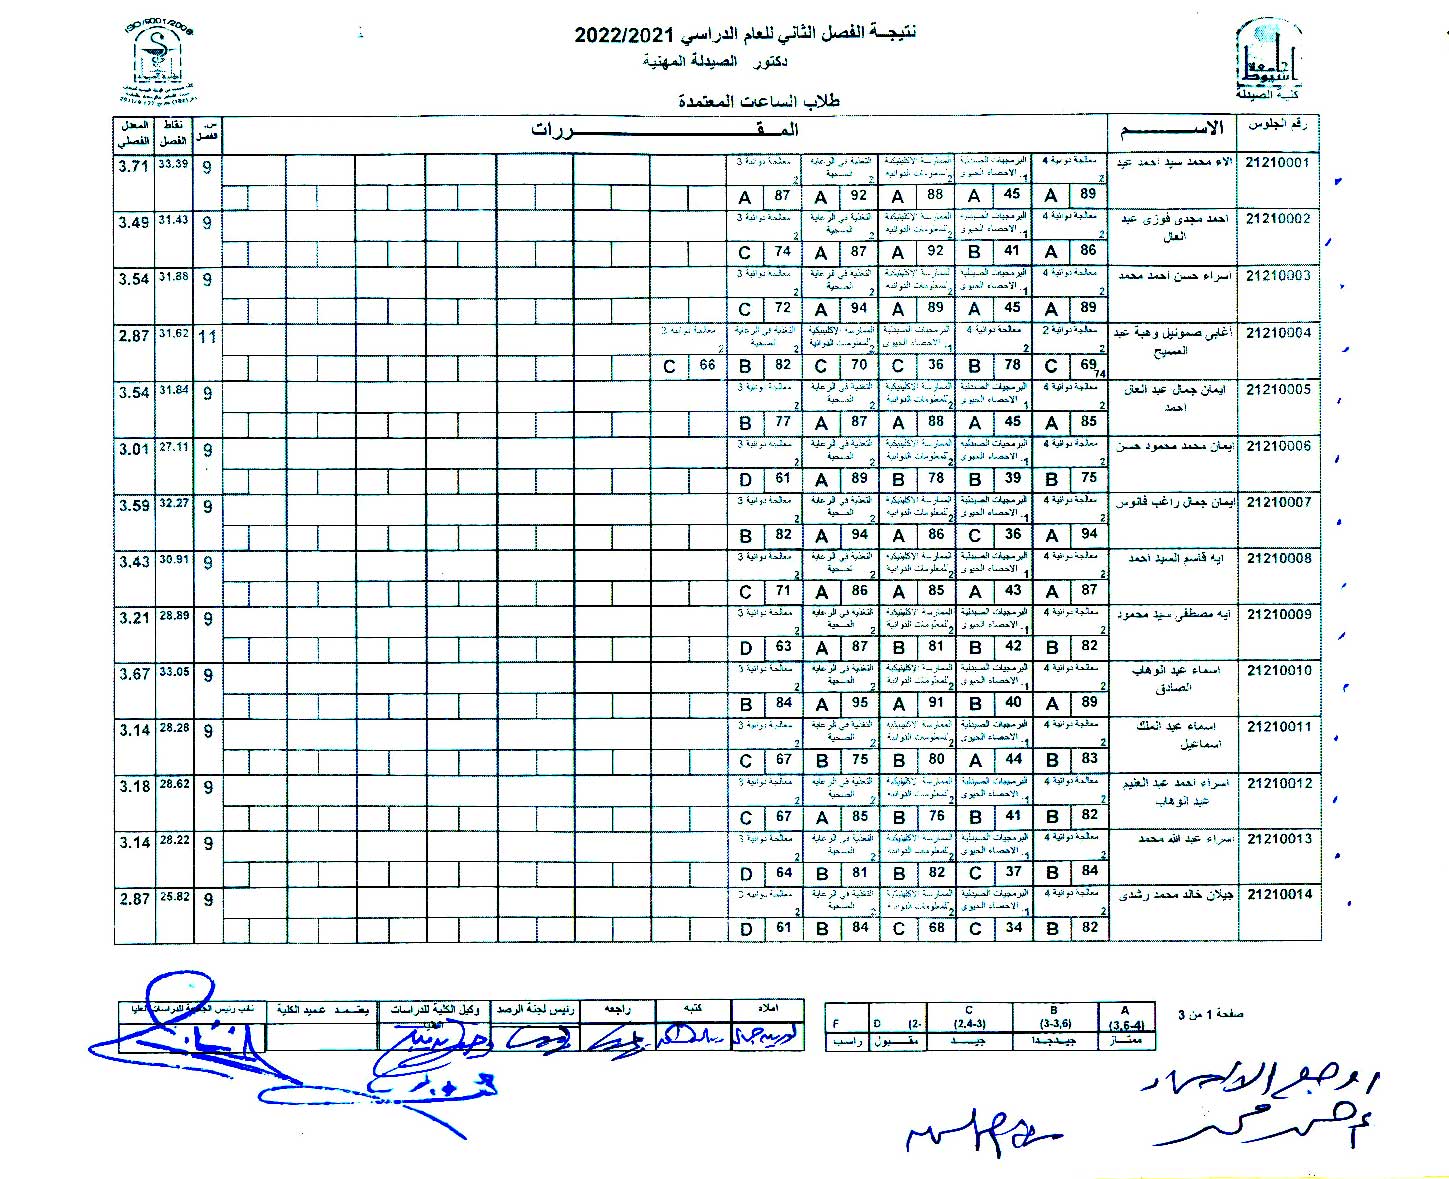 ISO/9001/2008
نتيجة الفصل الثاني للعام الدراسي 2022/2021
دكتور الصيدلة المهنية
طلاب الساعات المعتمدة
جامعة أسيوط
كلية الصيدلة
رقم الجلوس الاسم المقررات س. الفصل نقاط الفصل المعدل الفصلي
21210001 الاء محمد سيد احمد عيد معالجة دوائية 4 2 البرمجيات الصيدلية الاحصاء الحيوى 1 الممارسة الاكلينيكية للمعلومات الدوائية 2 التغذية في الرعاية الصحية 2 معالجة دوائية 3 2 9 33.39 3.71
89 A 45 A 88 A 92 A 87 A
21210002 احمد مجدى فوزى عبد العال معالجة دوائية 4 2 البرمجيات الصيدلية الاحصاء الحيوى 1 الممارسة الاكلينيكية للمعلومات الدوائية 2 التغذية في الرعاية الصحية 2 معالجة دوائية 3 2 9 31.43 3.49
86 A 41 B 92 A 87 A 74 C
21210003 اسراء حسن احمد محمد معالجة دوائية 4 2 البرمجيات الصيدلية الاحصاء الحيوى 1 الممارسة الاكلينيكية للمعلومات الدوائية 2 التغذية في الرعاية الصحية 2 معالجة دوائية 3 2 9 31.88 3.54
89 A 45 A 89 A 94 A 72 C
21210004 أغابى صموئيل وهبة عبد المسيح معالجة دوائية 2 2 معالجة دوائية 4 2 البرمجيات الصيدلية الاحصاء الحيوى 1 الممارسة الاكلينيكية للمعلومات الدوائية 2 التغذية في الرعاية الصحية 2 معالجة دوائية 3 2 11 31.62 2.87
69 74 C 78 B 36 C 70 C 82 B 66 C
21210005 ايمان جمال عبد العال احمد معالجة دوائية 4 2 البرمجيات الصيدلية الاحصاء الحيوى 1 الممارسة الاكلينيكية للمعلومات الدوائية 2 التغذية في الرعاية الصحية 2 معالجة دوائية 3 2 9 31.84 3.54
85 A 45 A 88 A 87 A 77 B
21210006 ايمان محمد محمود حسن معالجة دوائية 4 2 البرمجيات الصيدلية الاحصاء الحيوى 1 الممارسة الاكلينيكية للمعلومات الدوائية 2 التغذية في الرعاية الصحية 2 معالجة دوائية 3 2 9 27.11 3.01
75 B 39 B 78 B 89 A 61 D
21210007 ايمان جمال راغب فانوس معالجة دوائية 4 2 البرمجيات الصيدلية الاحصاء الحيوى 1 الممارسة الاكلينيكية للمعلومات الدوائية 2 التغذية في الرعاية الصحية 2 معالجة دوائية 3 2 9 32.27 3.59
94 A 36 C 86 A 94 A 82 B
21210008 ايه قاسم السيد احمد معالجة دوائية 4 2 البرمجيات الصيدلية الاحصاء الحيوى 1 الممارسة الاكلينيكية للمعلومات الدوائية 2 التغذية في الرعاية الصحية 2 معالجة دوائية 3 2 9 30.91 3.43
87 A 43 A 85 A 86 A 71 C
21210009 ايه مصطفى سيد محمود معالجة دوائية 4 2 البرمجيات الصيدلية الاحصاء الحيوى 1 الممارسة الاكلينيكية للمعلومات الدوائية 2 التغذية في الرعاية الصحية 2 معالجة دوائية 3 2 9 28.89 3.21
82 B 42 B 81 B 87 A 63 D
21210010 اسماء عبد الوهاب الصادق معالجة دوائية 4 2 البرمجيات الصيدلية الاحصاء الحيوى 1 الممارسة الاكلينيكية للمعلومات الدوائية 2 التغذية في الرعاية الصحية 2 معالجة دوائية 3 2 9 33.05 3.67
89 A 40 B 91 A 95 A 84 B
21210011 اسماء عبد الملك اسماعيل معالجة دوائية 4 2 البرمجيات الصيدلية الاحصاء الحيوى 1 الممارسة الاكلينيكية للمعلومات الدوائية 2 التغذية في الرعاية الصحية 2 معالجة دوائية 3 2 9 28.28 3.14
83 B 44 A 80 B 75 B 67 C
21210012 اسراء احمد عبد العليم عبد الوهاب معالجة دوائية 4 2 البرمجيات الصيدلية الاحصاء الحيوى 1 الممارسة الاكلينيكية للمعلومات الدوائية 2 التغذية في الرعاية الصحية 2 معالجة دوائية 3 2 9 28.62 3.18
82 B 41 B 76 B 85 A 67 C
21210013 اسراء عبد الله محمد معالجة دوائية 4 2 البرمجيات الصيدلية الاحصاء الحيوى 1 الممارسة الاكلينيكية للمعلومات الدوائية 2 التغذية في الرعاية الصحية 2 معالجة دوائية 3 2 9 28.22 3.14
84 B 37 C 82 B 81 B 64 D
21210014 جيلان خالد محمد رشدى معالجة دوائية 4 2 البرمجيات الصيدلية الاحصاء الحيوى 1 الممارسة الاكلينيكية للمعلومات الدوائية 2 التغذية في الرعاية الصحية 2 معالجة دوائية 3 2 9 25.82 2.87
82 B 34 C 68 C 84 B 61 D
صفحة 1 من 3
A (3,6-4) B (3-3,6) C (2,4-3) D (2- F
ممتاز جيدجدا جيد مقبول راسب
املاه كتبه راجعه رئيس لجنة الرصد وكيل الكلية للدراسات العليا يعتمد عميد الكلية نائب رئيس الجامعة للدراسات العليا